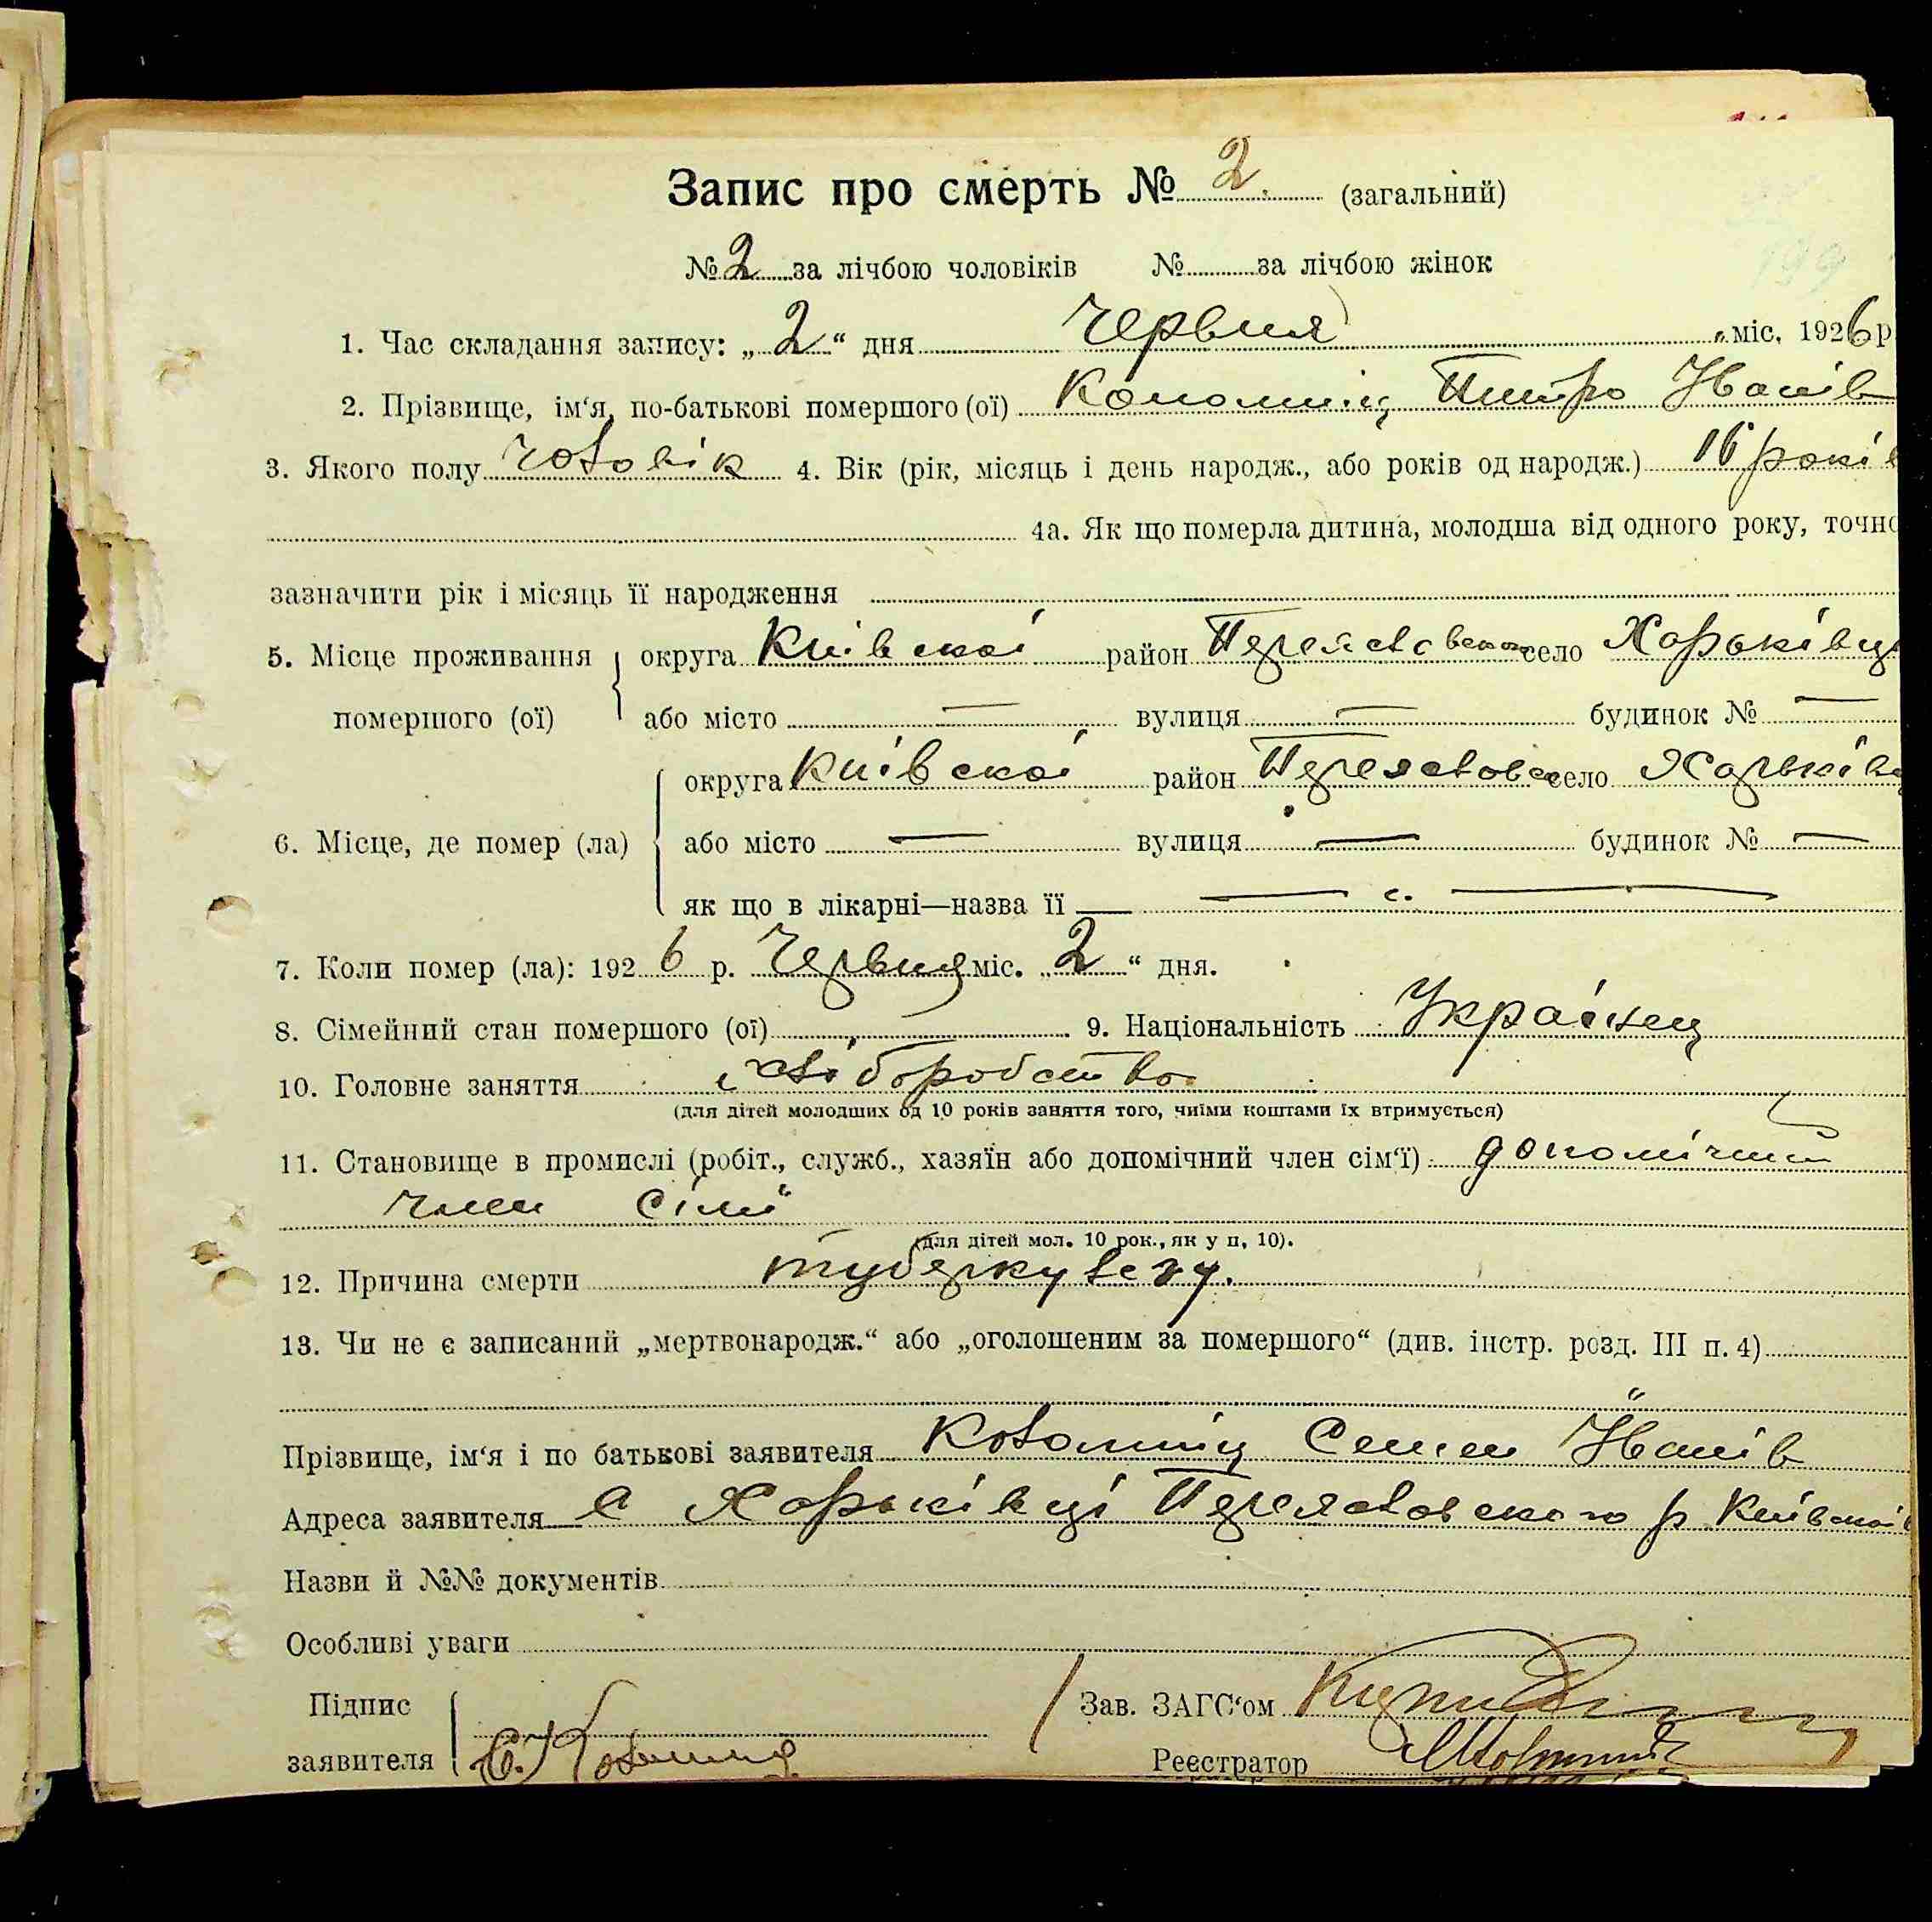 Запис про смерть № 2. (загальний)
№ 2 за лічбою чоловіків № за лічбою жінок
1. Час складання запису: „ 2 “ дня Червня „ міс. 1926 р
2. Прізвище, ім‘я, по-батькові помершого (ої) Коломиіц Питро Иванів
3. Якого полу чоловік 4. Вік (рік, місяць і день народж., або років од народж.) 16 років
4а. Як що померла дитина, молодша від одного року, точно
зазначити рік і місяць її народження
5. Місце проживання округа Київскої район село Харьківці
помершого (ої) або місто — вулиця — будинок № —
округа Київскої район село Харьківц
6. Місце, де помер (ла) або місто — вулиця — будинок № —
як що в лікарні—назва її —
7. Коли помер (ла): 1926 р. Червня міс. „ 2 “ дня.
8. Сімейний стан помершого (ої) 9. Національність Украінец
10. Головне заняття хліборобство
(для дітей молодших од 10 років заняття того, чиїми коштами їх втримується)
11. Становище в промислі (робіт., служб., хазяїн або допомічний член сім‘ї) допомічний
член сімї
(для дітей мол. 10 рок., як у п, 10).
12. Причина смерти туберкулезу.
13. Чи не є записаний „мертвонародж.“ або „оголошеним за помершого“ (див. інстр. розд. III п. 4)
Прізвище, ім‘я і по батькові заявителя Коломиіц Семен Иванів
Адреса заявителя с Харьківці Переяславского р Київскої
Назви й №№ документів
Особливі уваги
Підпис Зав. ЗАГС‘ом
заявителя С. Коломиіц Реєстратор